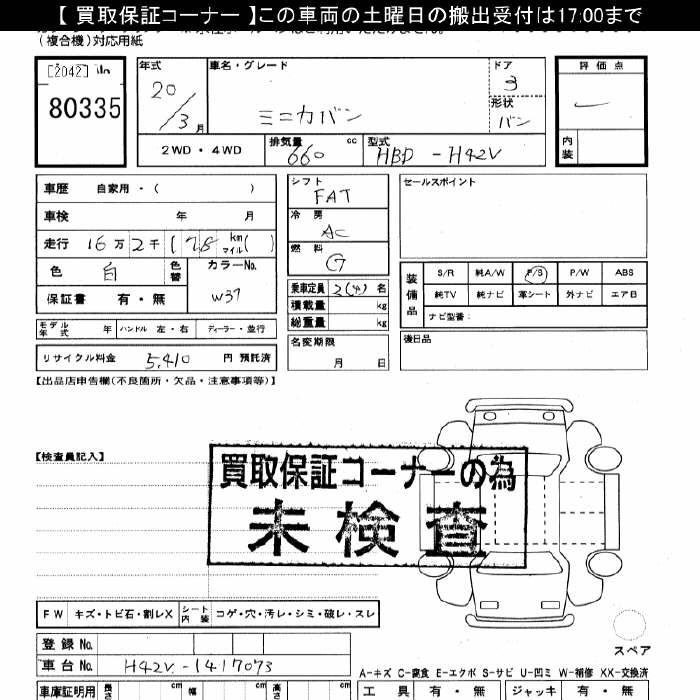 【 買取保証コーナー 】この車両の土曜日の搬出受付は17:00まで
(複合機)対応用紙
[2042]
80335
年式 20/3 月
車名・グレード ミニカバン
ドア 3
形状 バン
評価点
内装
2WD・4WD
排気量 660 cc
型式 HBD - H42V
車歴 自家用・( )
車検 年 月
走行 16万2千(78 km マイル( )
色 白 色替
カラーNo. W37
保証書 有・無
モデル年式 年 ハンドル 左・右 ディーラー・並行
リサイクル料金 5,410 円 預託済
シフト FAT
冷房 AC
燃料 G
乗車定員 2(4) 名
積載量 kg
総重量 kg
名変期限 月 日
セールスポイント
装備品
S/R 純A/W P/S P/W ABS
純TV 純ナビ 革シート 外ナビ エアB
ナビ型番:
後日品
【出品店申告欄(不良箇所・欠品・注意事項等)】
【検査員記入】
買取保証コーナーの為
未検査
FW キズ・トビ石・割レX シート内装 コゲ・穴・汚レ・シミ・破レ・スレ
スペア
登録No.
車台No. H42V-1417073
A-キズ C-腐食 E-エクボ S-サビ U-凹ミ W-補修 XX-交換済
車庫証明用 長さ cm 幅 cm 高さ cm
工具 有・無 ジャッキ 有・無